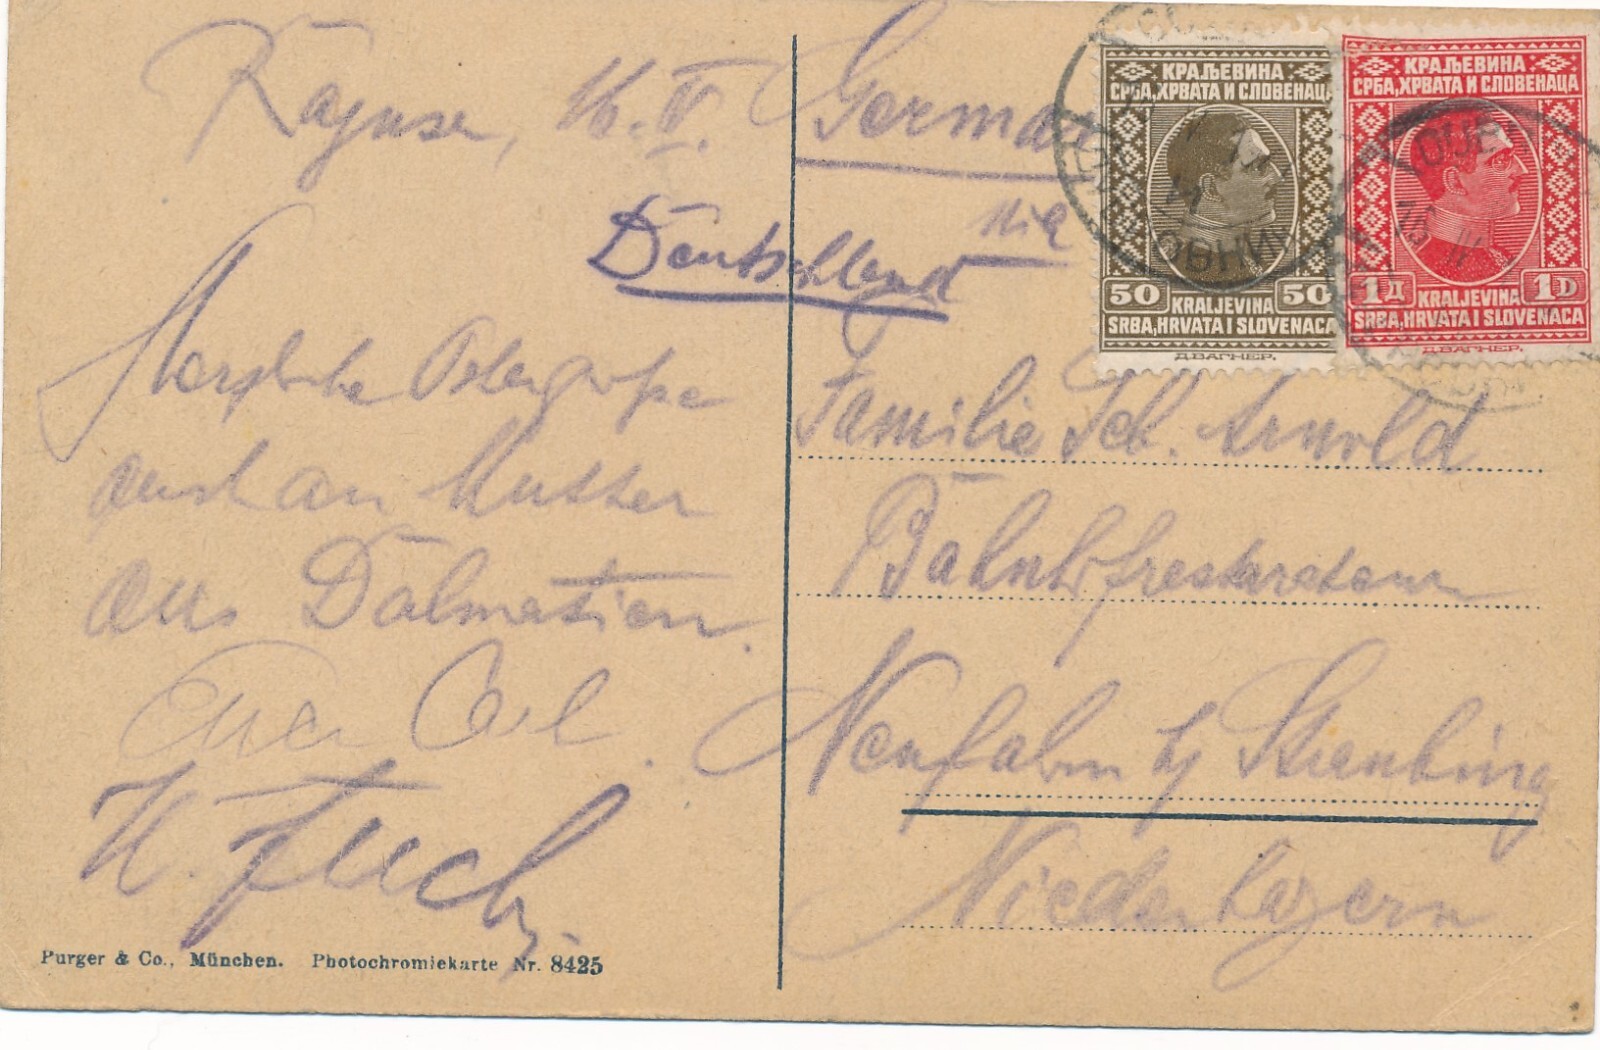 Ragusa, 16. V.
Herzliche Ostergrüße
auch an Mutter
aus Dalmatien.
Euer Carl.
Purger & Co., München. Photochromiekarte Nr. 8425
Germa
nia
Deutschland
Familie Sch. Arnold
Bahnhofrestaurateur
Neufahrn by Straubing
Niederbayern
КРАЉЕВИНА
СРБА, ХРВАТА И СЛОВЕНАЦА
50 KRALJEVINA 50
SRBA, HRVATA I SLOVENACA
Д.ВАГНЕР.
КРАЉЕВИНА
СРБА, ХРВАТА И СЛОВЕНАЦА
1Д KRALJEVINA 1D
SRBA, HRVATA I SLOVENACA
Д.ВАГНЕР.